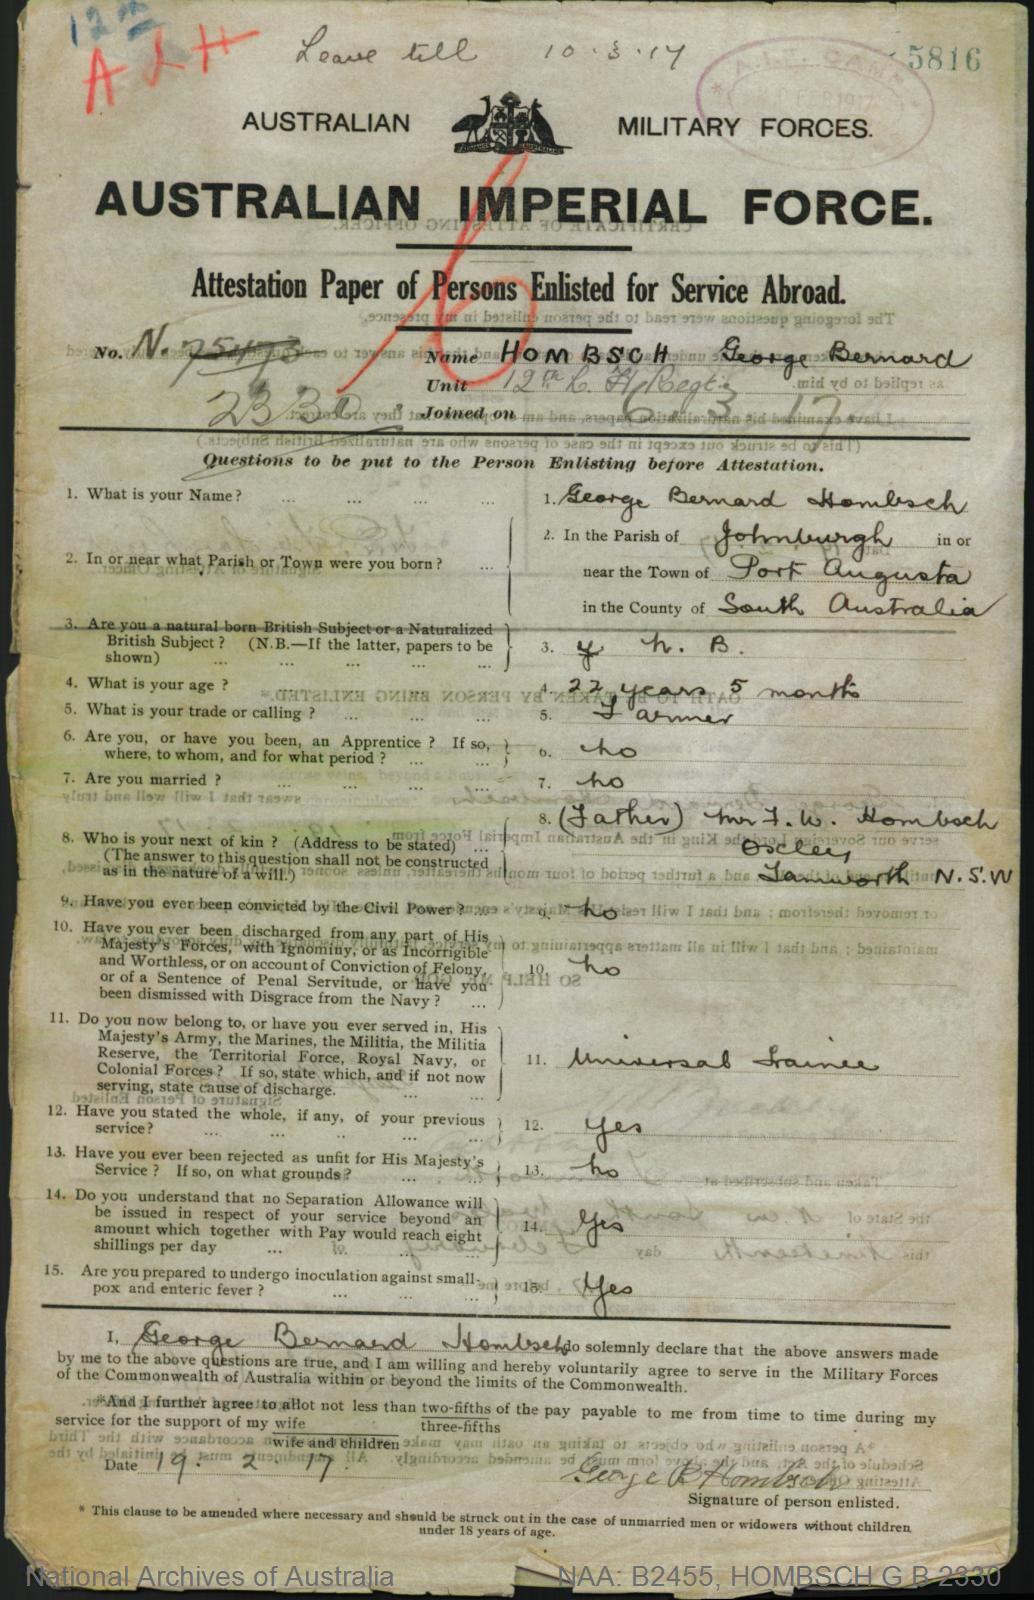 12th
A L H
Leave till 10.3.17
5816
A.I.F. CAMP
1917
AUSTRALIAN MILITARY FORCES.
AUSTRALIAN IMPERIAL FORCE.
Attestation Paper of Persons Enlisted for Service Abroad.
No. N. 75473
Name HOMBSCH George Bernard
Unit 12th L. H. Regt.
2330 Joined on 6. 3. 17.
Questions to be put to the Person Enlisting before Attestation.
1. What is your Name? ... ... ... ... 1. George Bernard Hombsch
2. In or near what Parish or Town were you born? ... 2. In the Parish of Johnburgh in or
near the Town of Port Augusta
in the County of South Australia
3. Are you a natural born British Subject or a Naturalized
British Subject? (N.B.—If the latter, papers to be
shown) ... ... ... ... ... 3. y N. B.
4. What is your age? 4. 22 years 5 months
5. What is your trade or calling? ... ... ... 5. Farmer
6. Are you, or have you been, an Apprentice? If so,
where, to whom, and for what period? ... ... 6. no
7. Are you married? ... ... ... ... 7. no
8. Who is your next of kin? (Address to be stated) ...
(The answer to this question shall not be constructed
as in the nature of a will.)
8. (Father) Mr F. W. Hombsch
Oxley
Tamworth N.S.W
9. Have you ever been convicted by the Civil Power? ... 9. no
10. Have you ever been discharged from any part of His
Majesty's Forces, with Ignominy, or as Incorrigible
and Worthless, or on account of Conviction of Felony,
or of a Sentence of Penal Servitude, or have you
been dismissed with Disgrace from the Navy? ...
10. no
11. Do you now belong to, or have you ever served in, His
Majesty's Army, the Marines, the Militia, the Militia
Reserve, the Territorial Force, Royal Navy, or
Colonial Forces? If so, state which, and if not now
serving, state cause of discharge. ... ...
11. Universal Trainee
12. Have you stated the whole, if any, of your previous
service? ... ... .. ... ... 12. Yes
13. Have you ever been rejected as unfit for His Majesty's
Service? If so, on what grounds? ... ... 13. no
14. Do you understand that no Separation Allowance will
be issued in respect of your service beyond an
amount which together with Pay would reach eight
shillings per day ... ... ... ...
14. Yes
15. Are you prepared to undergo inoculation against small-
pox and enteric fever? ... ... ... 15. Yes
I, George Bernard Hombsch do solemnly declare that the above answers made
by me to the above questions are true, and I am willing and hereby voluntarily agree to serve in the Military Forces
of the Commonwealth of Australia within or beyond the limits of the Commonwealth.
*And I further agree to allot not less than two-fifths of the pay payable to me from time to time during my
service for the support of my wife three-fifths
wife and children
Date 19. 2 17.
George B Hombsch
Signature of person enlisted.
* This clause to be amended where necessary and should be struck out in the case of unmarried men or widowers without children
under 18 years of age.
National Archives of Australia NAA: B2455, HOMBSCH G B 2330